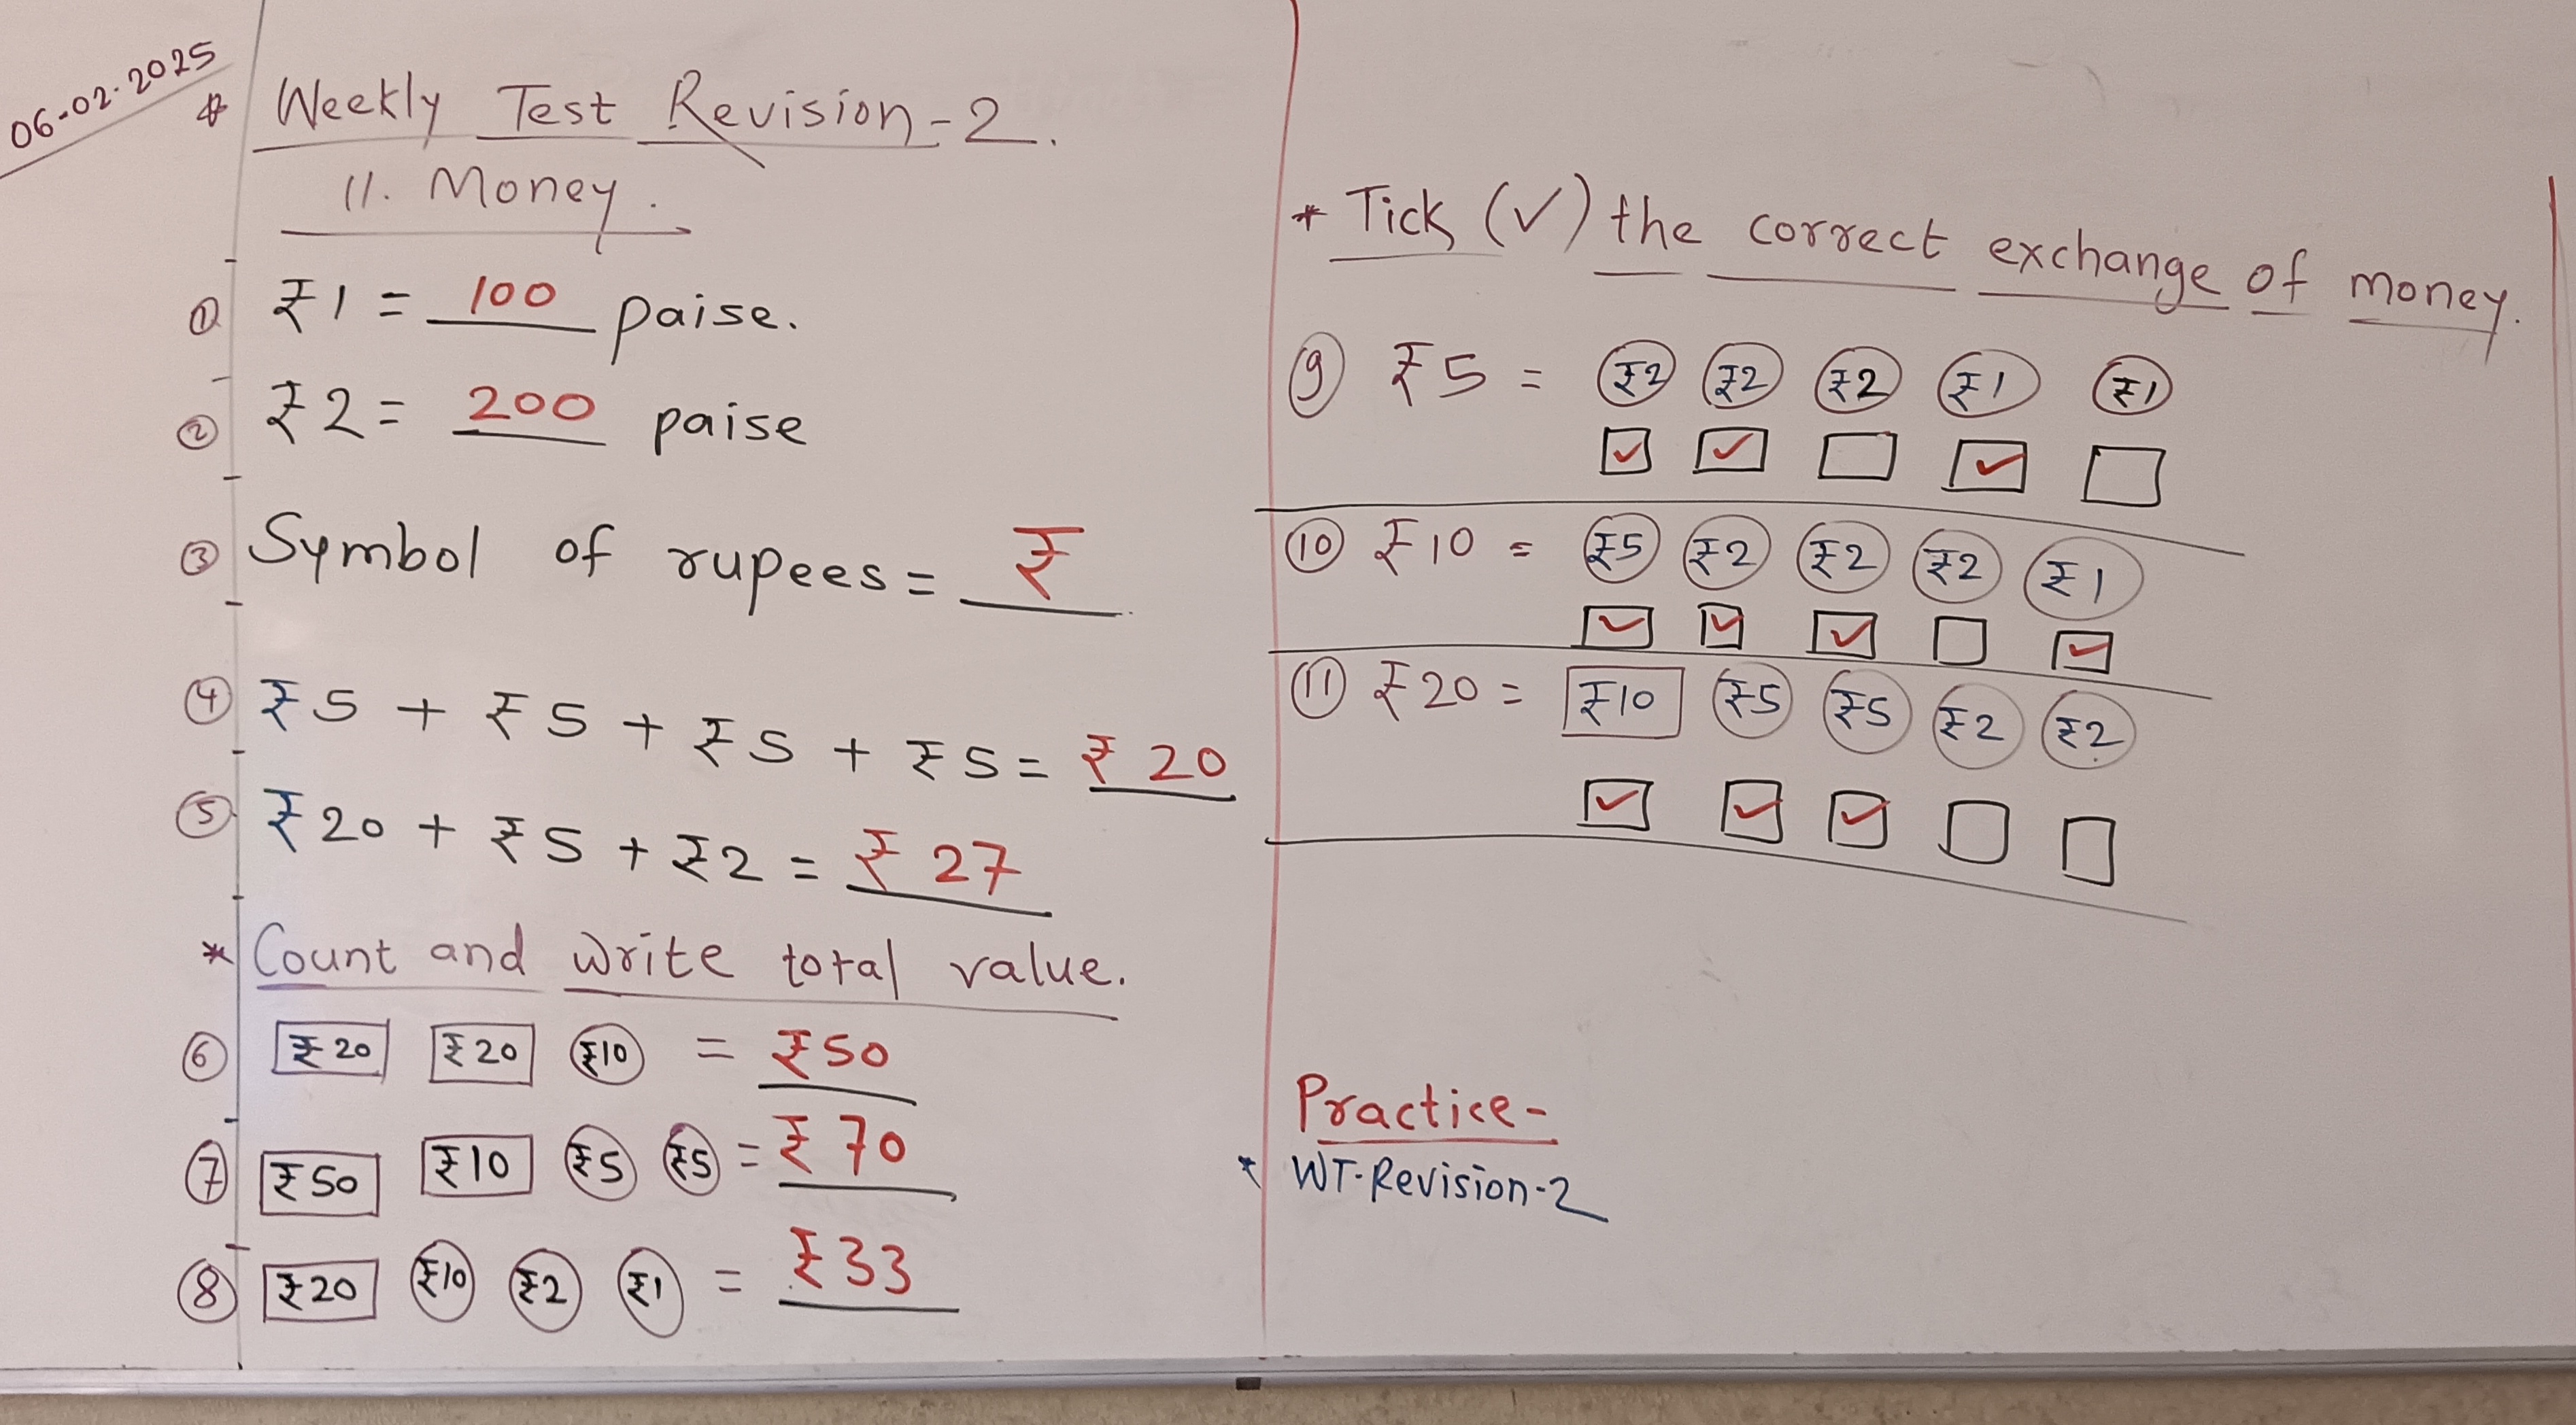 06-02-2025
* Weekly Test Revision-2.
11. Money.
① ₹1 = 100 paise.
② ₹2 = 200 paise
③ Symbol of rupees = ₹
④ ₹5 + ₹5 + ₹5 + ₹5 = ₹20
⑤ ₹20 + ₹5 + ₹2 = ₹27
* Count and write total value.
⑥ ₹20 ₹20 ₹10 = ₹50
⑦ ₹50 ₹10 ₹5 ₹5 = ₹70
⑧ ₹20 ₹10 ₹2 ₹1 = ₹33
* Tick (✓) the correct exchange of money.
⑨ ₹5 = ₹2 ₹2 ₹2 ₹1 ₹1
☑ ☑ ☐ ☑ ☐
⑩ ₹10 = ₹5 ₹2 ₹2 ₹2 ₹1
☑ ☑ ☑ ☐ ☑
⑪ ₹20 = ₹10 ₹5 ₹5 ₹2 ₹2
☑ ☑ ☑ ☐ ☐
Practice-
* WT-Revision-2